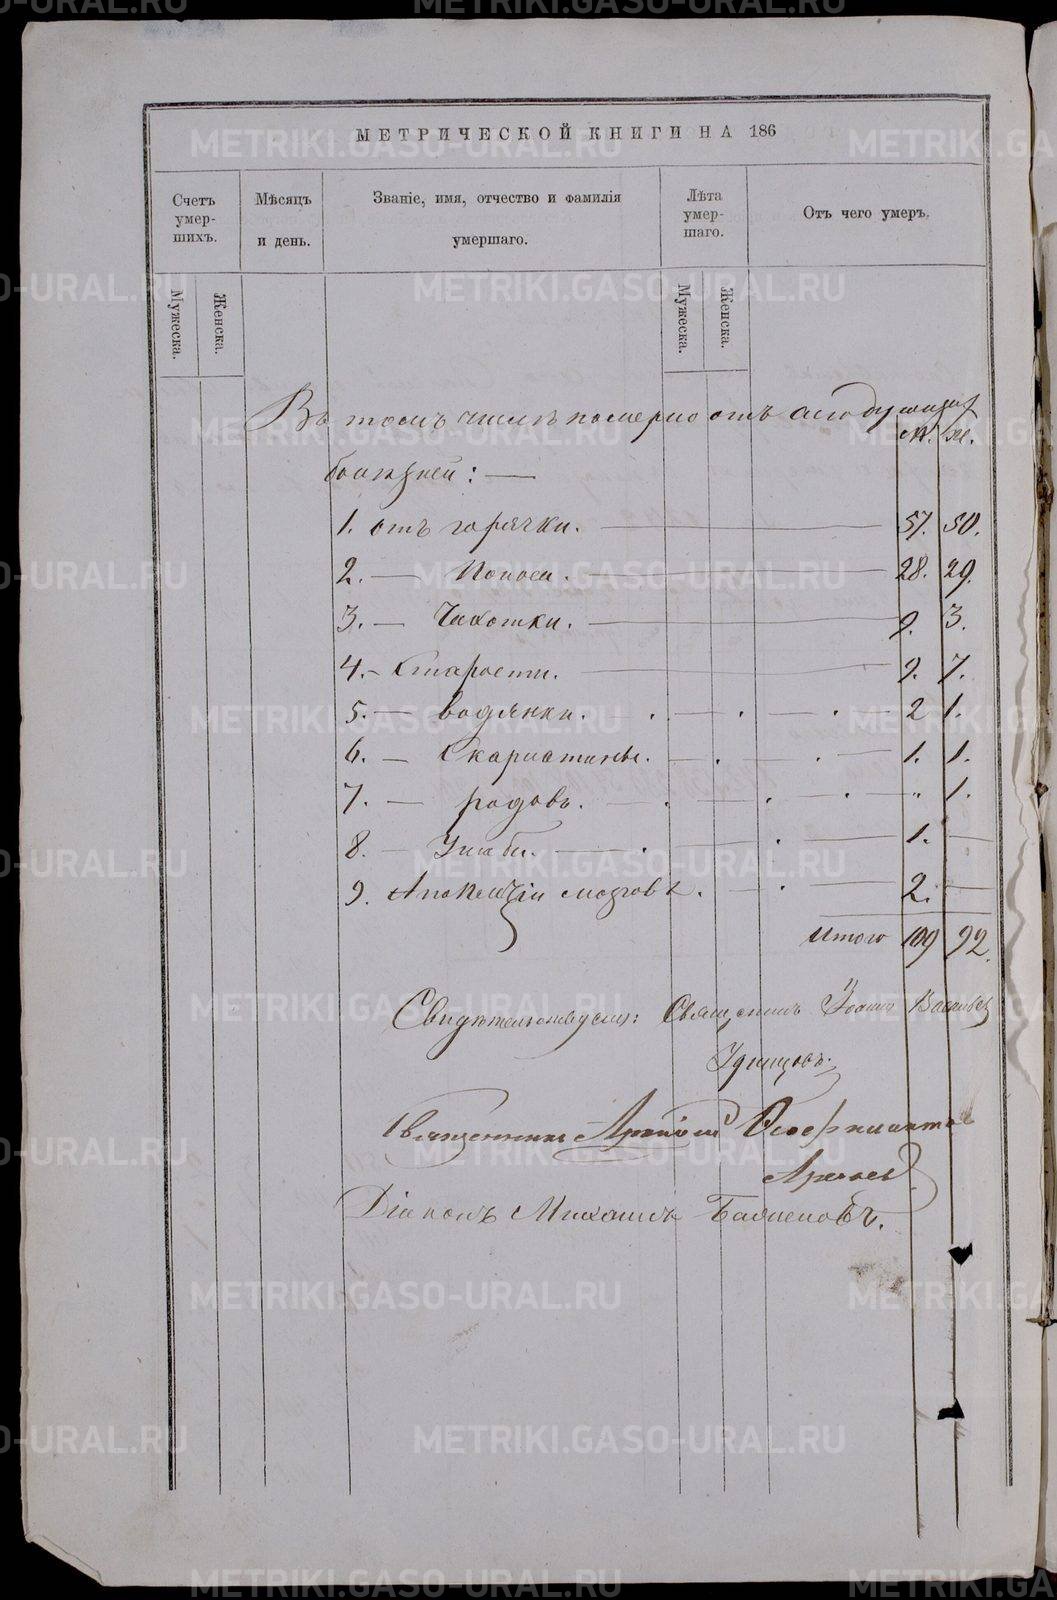 МЕТРИЧЕСКОЙ КНИГИ НА 186
Счетъ умер-шихъ.
Мѣсяцъ и день.
Званіе, имя, отчество и фамилія умершаго.
Лѣта умер-шаго.
Отъ чего умеръ.
Мужеска.
Женска.
Мужеска.
Женска.
Въ томъ числѣ померло отъ слѣдующихъ
м. ж.
болѣзней: —
1. отъ горячки. — 57. 50.
2. — Поноса. — 28. 29.
3. — Чахотки. — 9. 3.
4. — Старости. — 9. 7.
5. — водянки. — 2 1.
6. — Скарлатины. — 1. 1.
7. — родовъ. — „ 1.
8. — Ушиба. — 1. —
9. Апоплексіи мозговъ. — 2. —
Итого 109 92.
Свидѣтельствуемъ: Священникъ Іоаннъ Васильевъ
Удинцовъ.
Священникъ
Діаконъ Михаилъ
METRIKI.GASO-URAL.RU